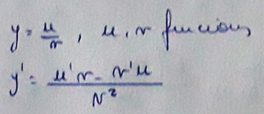 y = u/v , u, v funcions
y' = (u'v - v'u)/v²